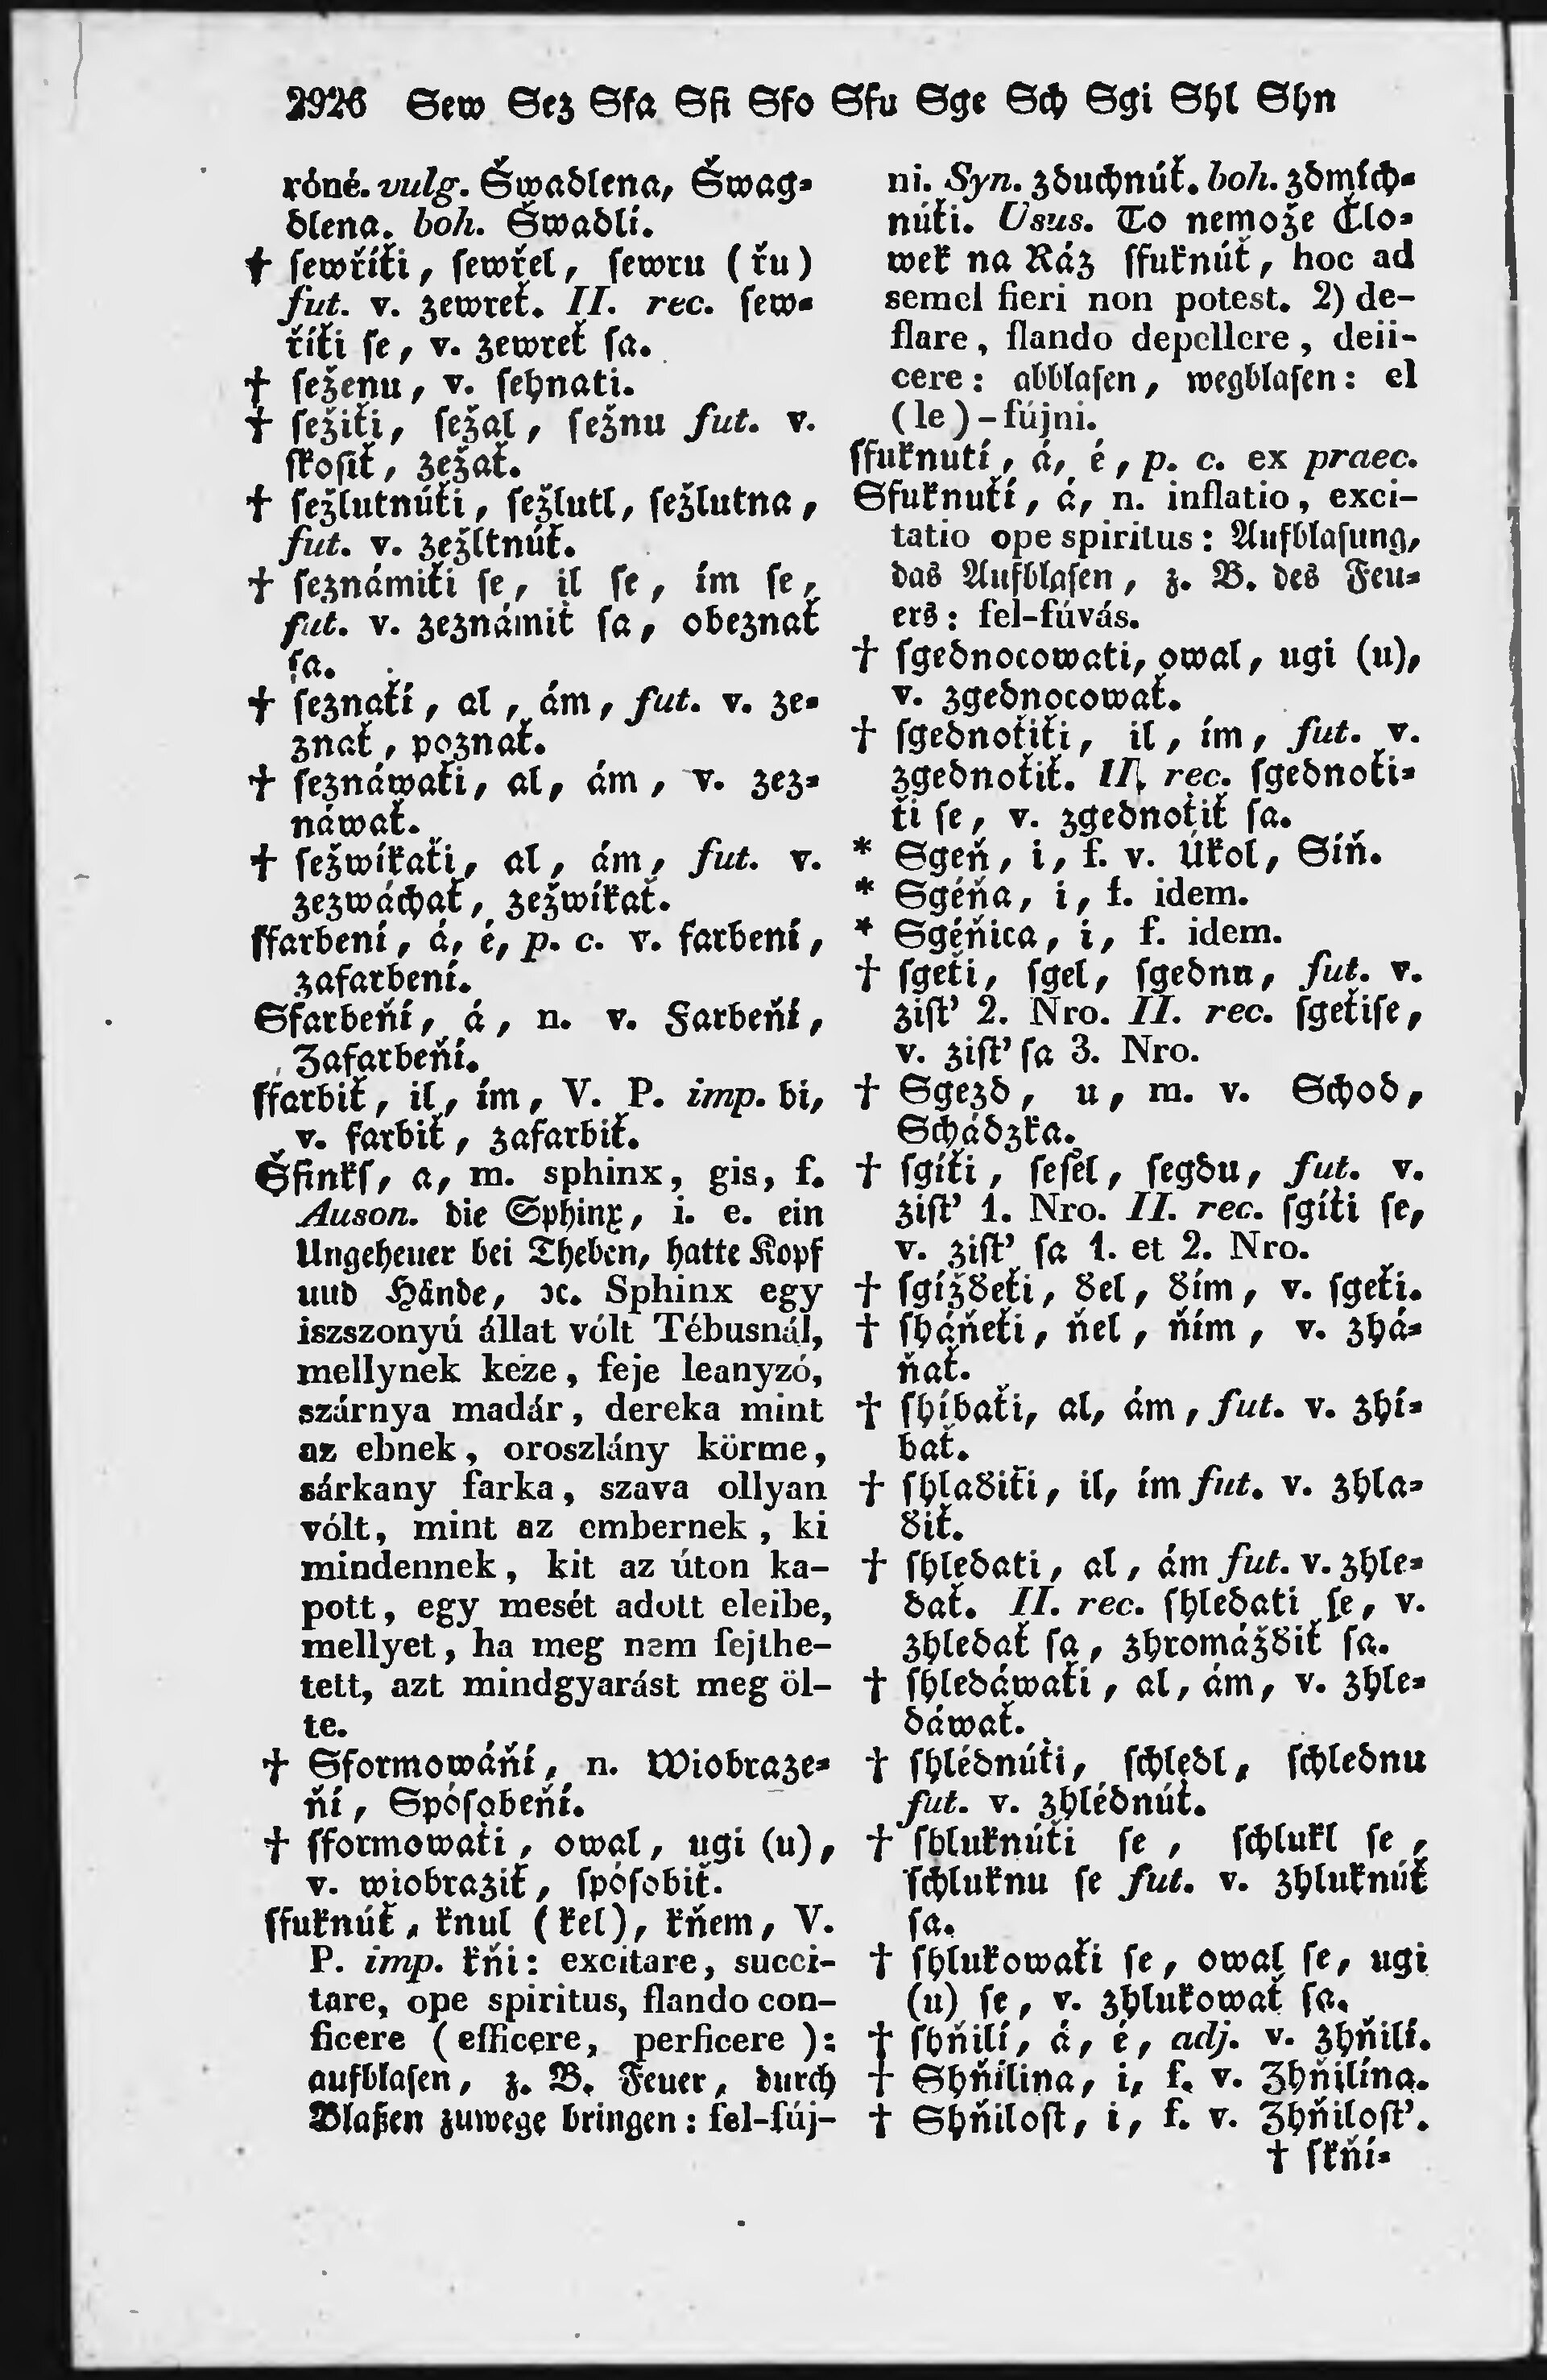 2926 Sew Sez Sfa Sfi Sfo Sfu Sge Sch Sgi Shl Shn
róné. vulg. Šwadlena, Šwag-
dlena. boh. Šwadlí.
† sewříťi, sewřel, sewru (řu)
fut. v. zewreť. II. rec. sew-
říťi se, v. zewreť sa.
† seženu, v. sehnati.
† sežiťi, sežal, sežnu fut. v.
skosiť, zežať.
† sežlutnúťi, sežlutl, sežlutna,
fut. v. zežltnúť.
† seznámiťi se, il se, ím se,
fut. v. zeznámiť sa, obeznať
sa.
† seznaťí, al, ám, fut. v. ze-
znať, poznať.
† seznáwaťi, al, ám, v. zez-
náwať.
† sežwíkaťi, al, ám, fut. v.
zezwáchať, zežwíkať.
sfarbení, á, é, p. c. v. farbení,
zafarbení.
Sfarbeňí, á, n. v. Farbeňí,
Zafarbeňí.
sfarbiť, il, ím, V. P. imp. bi,
v. farbiť, zafarbiť.
Šfinks, a, m. sphinx, gis, f.
Auson. die Sphinx, i. e. ein
Ungeheuer bei Theben, hatte Kopf
uud Hände, ꝛc. Sphinx egy
iszszonyú állat vólt Tébusnál,
mellynek keze, feje leanyzó,
szárnya madár, dereka mint
az ebnek, oroszlány körme,
sárkany farka, szava ollyan
vólt, mint az embernek, ki
mindennek, kit az úton ka-
pott, egy mesét adott eleibe,
mellyet, ha meg nem fejthe-
tett, azt mindgyarást meg öl-
te.
† Sformowáňí, n. Wiobraze-
ňí, Spósobeňí.
† sformowaťi, owal, ugi (u),
v. wiobraziť, spósobiť.
sfuknúť, knul (kel), kňem, V.
P. imp. kňi: excitare, succi-
tare, ope spiritus, flando con-
ficere (efficere, perficere):
aufblasen, z. B. Feuer, durch
Blaßen zuwege bringen: fel-fúj-
ni. Syn. zduchnúť. boh. zdmích-
núťi. Usus. To nemože Člo-
wek na Ráz sfuknúť, hoc ad
semel fieri non potest. 2) de-
flare, flando depellere, deii-
cere: abblasen, wegblasen: el
(le)-fújni.
sfuknutí, á, é, p. c. ex praec.
Sfuknuťí, á, n. inflatio, exci-
tatio ope spiritus: Aufblasung,
das Aufblasen, z. B. des Feu-
ers: fel-fúvás.
† sgednocowati, owal, ugi (u),
v. zgednocowať.
† sgednoťiťi, il, ím, fut. v.
zgednoťiť. II. rec. sgednoťi-
ťi se, v. zgednoťiť sa.
* Sgeň, i, f. v. Úkol, Síň.
* Sgéňa, i, f. idem.
* Sgéňica, i, f. idem.
† sgeťi, sgel, sgednu, fut. v.
zisť' 2. Nro. II. rec. sgeťise,
v. zisť' sa 3. Nro.
† Sgezd, u, m. v. Schod,
Schádzka.
† sgíťi, sešel, segdu, fut. v.
zisť' 1. Nro. II. rec. sgíti se,
v. zisť' sa 1. et 2. Nro.
† sgížďeťi, ďel, ďím, v. sgeťi.
† sháňeťi, ňel, ňím, v. zhá-
ňať.
† shíbaťi, al, ám, fut. v. zhí-
bať.
† shlaďiťi, il, ím fut. v. zhla-
ďiť.
† shledati, al, ám fut. v. zhle-
dať. II. rec. shledati se, v.
zhledať sa, zhromážďiť sa.
† shledáwaťi, al, ám, v. zhle-
dáwať.
† shlédnúťi, schledl, schlednu
fut. v. zhlédnúť.
† shluknúťi se, schlukl se,
schluknu se fut. v. zhluknúť
sa.
† shlukowaťi se, owal se, ugi
(u) se, v. zhlukowať sa.
† shňilí, á, é, adj. v. zhňilí.
† Shňílina, i, f. v. Zhňilína.
† Shňilost, i, f. v. Zhňilosť'.
† skňí-